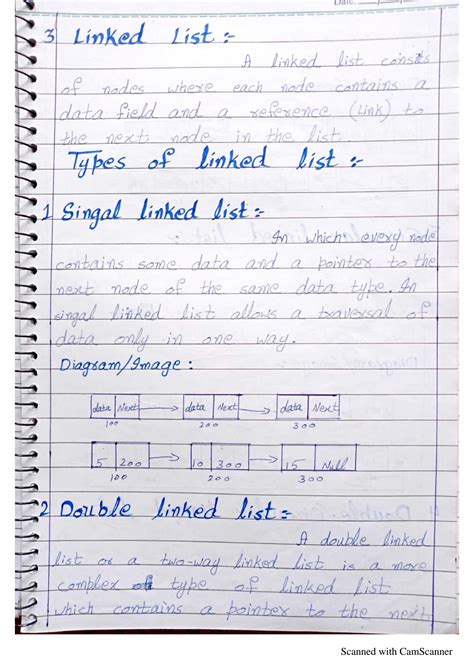 Date:
3 Linked List :-
A linked list consts
of nodes where each node contains a
data field and a reference (Link) to
the next node in the list.
Types of linked list :-
1 Singal linked list :-
In which every node
contains some data and a pointer to the
next node of the same data type. In
singal linked list allows a traversal of
data only in one way.
Diagram/Image :
data Next data Next data Next
100 200 300
5 200 10 300 15 Null
100 200 300
2 Double linked list :-
A double linked
list or a two-way linked list is a more
complex type of linked list
which contains a pointer to the next
Scanned with CamScanner